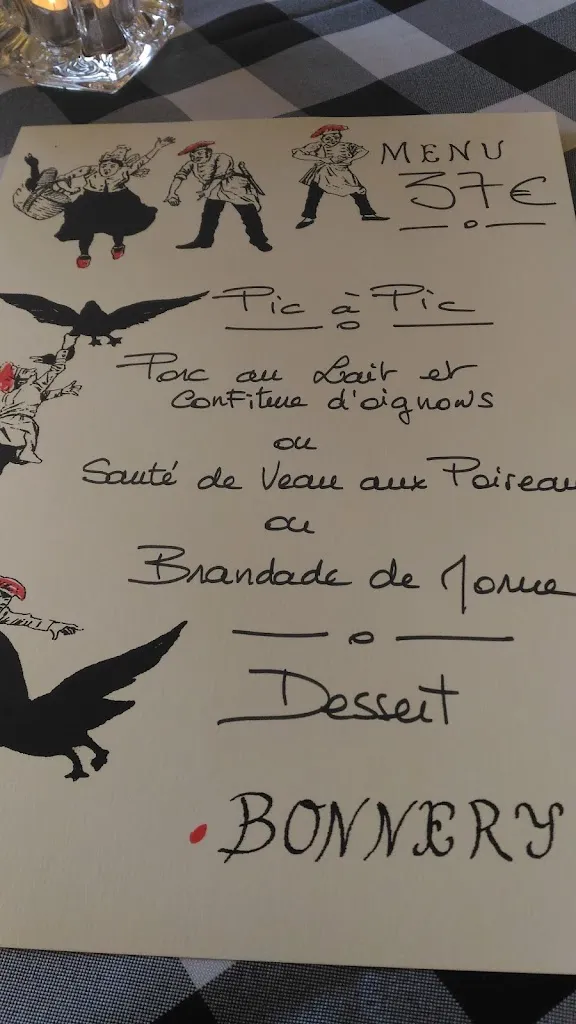 MENU
37€
Pic à Pic
Porc au Lait et
Confiture d'oignons
ou
Sauté de Veau aux Poireau
ou
Brandade de Morue
Dessert
BONNERY